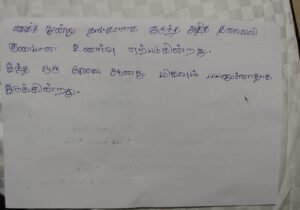 எனக்கு மூன்று நாட்களாக இருந்த அதிக தலைவலி
குணமான உணர்வு ஏற்படுகின்றது.
இந்த ஒரு சேவை ஆனது மிகவும் பயனுள்ளதாக
இருக்கின்றது.